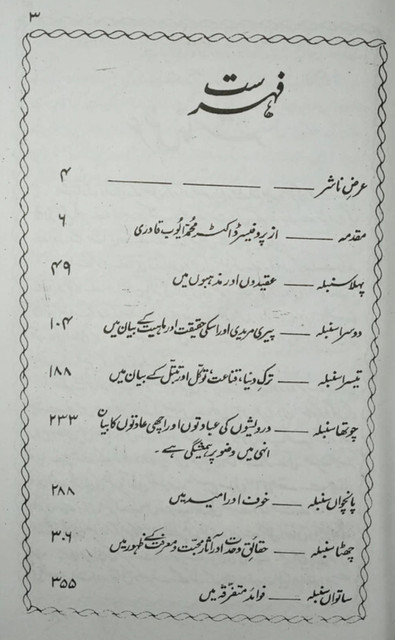 ۳
فہرست
عرض ناشر ۴
مقدمہ از پروفیسر ڈاکٹر محمد ایوب قادری ۶
پہلا سنبلہ عقیدوں اور مذہبوں میں ۴۹
دوسرا سنبلہ پیری مریدی اور اسکی حقیقت اور ماہیت کے بیان میں ۱۰۴
تیسرا سنبلہ ترک دنیا، قناعت، توکل اور تبتّل کے بیان میں ۱۸۸
چوتھا سنبلہ درویشوں کی عبادتوں اور اچھی عادتوں کا بیان ۲۳۳
انہی میں وضو پر ہمیشگی ہے۔
پانچواں سنبلہ خوف اور امید میں ۲۸۸
چھٹا سنبلہ حقائق وحدت اور آثار محبت و معرفت کے ظہور میں ۳۰۶
ساتواں سنبلہ فوائد متفرقہ میں ۳۵۵